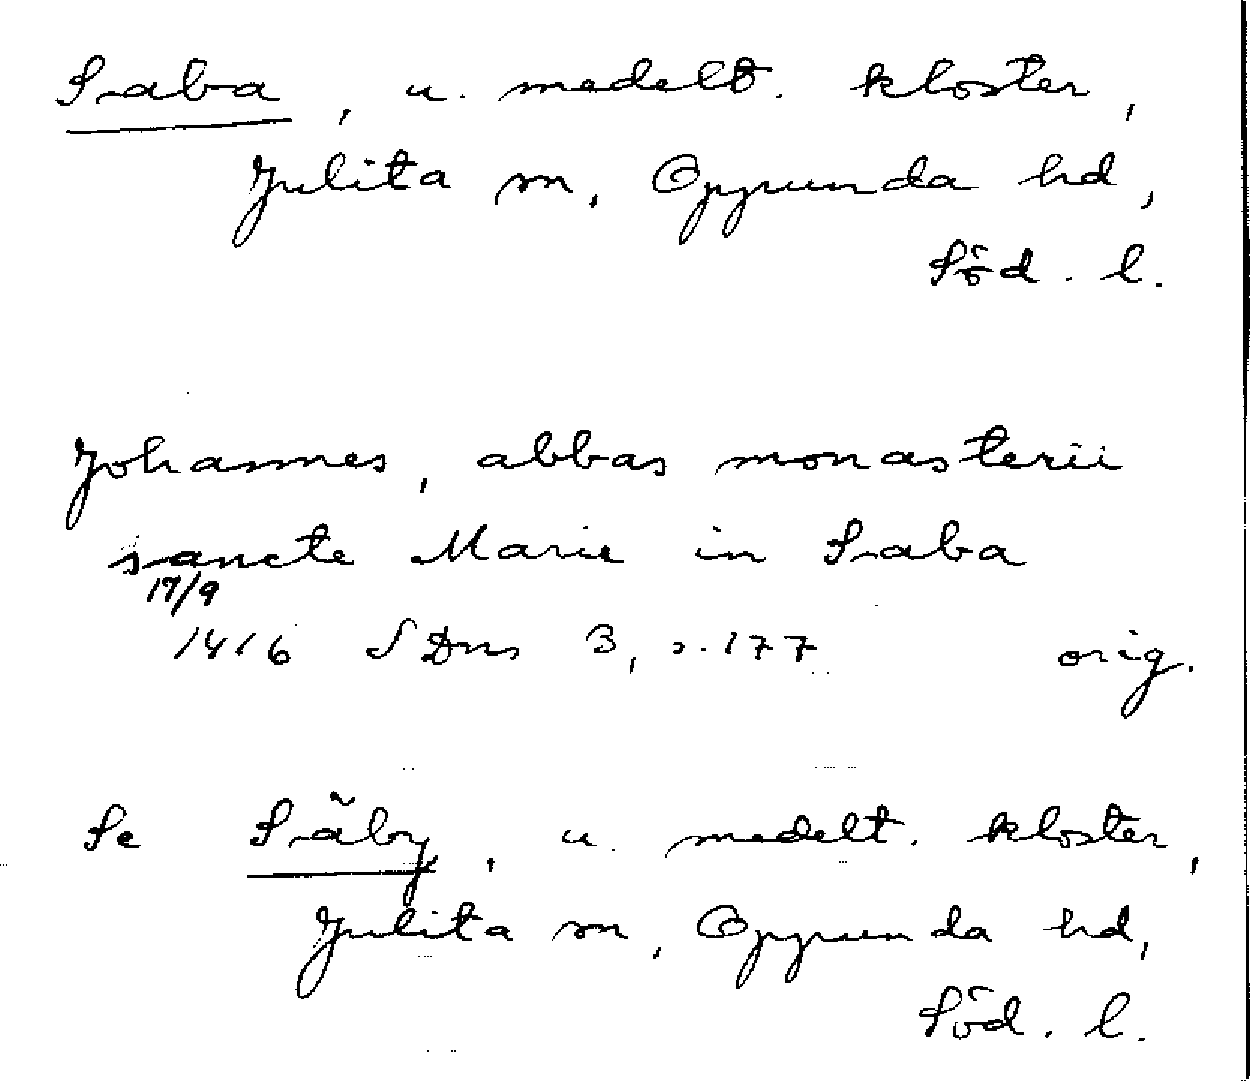 Saba, u. medelt. kloster,
Julita sn, Oppunda hd,
Söd. l.
Johannes, abbas monasterii
sancte Marie in Saba
17/9
1416 SDns 3, s. 177 orig.
Se Säby, u. medelt. kloster,
Julita sn, Oppunda hd,
Söd. l.